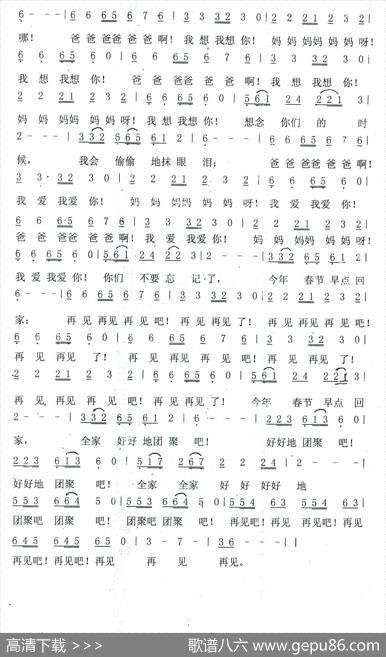 6 - - - | 6 6 65 65 | 6 7 6 | 3 3 32 30 | 2 2 21 2 32 |
哪! 爸 爸爸爸爸爸啊! 我想我想你! 妈 妈妈妈妈妈呀!
6 6 65 60 | 2 2 21 23 | 6 6 65 65 6 7 6 | 3 3 32 30 |
我 想 我想 你! 爸 爸爸爸爸爸 啊! 我 想 我想 你!
2 2 21 232 | 6 6 65 60 | 561 24 221 3 |
妈妈 妈妈 妈妈呀! 我 想 我想 你! 想念 你们 的 时
2 - - - | 332 565 61 2 | 6 - - - | 6 6 65 65 6 7 |
候, 我会 偷偷 地抹 眼 泪; 爸 爸爸爸爸爸啊!
3 3· 32 30 | 2 2 21 23 | 6 6 65 60 | 2 2 21 232 |
我 爱 我爱 你! 妈妈 妈妈 妈妈呀! 我 爱 我爱 你!
6 6 6·5 6 7 6 | 3 3 32 30 | 2 2 21 2 32 |
爸爸 爸爸 爸爸啊! 我 爱 我爱你! 妈 妈妈 妈妈 妈呀!
6 6 65 60 | 561 24 22 3 | 2 - - - | 332 65 61 2 |
我 爱 我爱 你! 你们 不要 忘 记了, 今年 春节 早点 回
6 - - - | 6 6 65 65 6 7 6 | 3 3 32 30 | 2 2 21 232 |
家; 再见再见再见吧! 再见再见了! 再见再见再见吧!
6 6 65 60 | 6 6 65 6 7 6 | 3 3 32 30 |
再 见 再见 了! 再见 再见 再见吧! 再见 再见 了!
2 2 21 23 | 6 6 65 60 | 561 24 221 3 |
再 见 再见 再见 吧! 再见 再见 了! 今年 春节 早点 回
2 - - - | 332 65 61 2 | 6 - - - | 223 613 60 |
家, 全家 好好 地团 聚 吧! 好好地 团聚 吧!
223 613 60 | 517 267 2 2 24 | 2 - - - |
好好地 团聚 吧! 全家 全家 好 好 好好 地
553 664 50 | 553 664 50 | 554 63 554 63 |
团聚吧 团聚 吧! 团聚吧 团聚 吧! 再见吧 再见! 再见吧! 再见
645 645 645 60 | 1 - 3 - | 6 - - - ||
再见吧! 再见吧! 再见吧! 再见 再 见 再 见。
高清下载 >>>
歌谱八六 www.gepu86.com